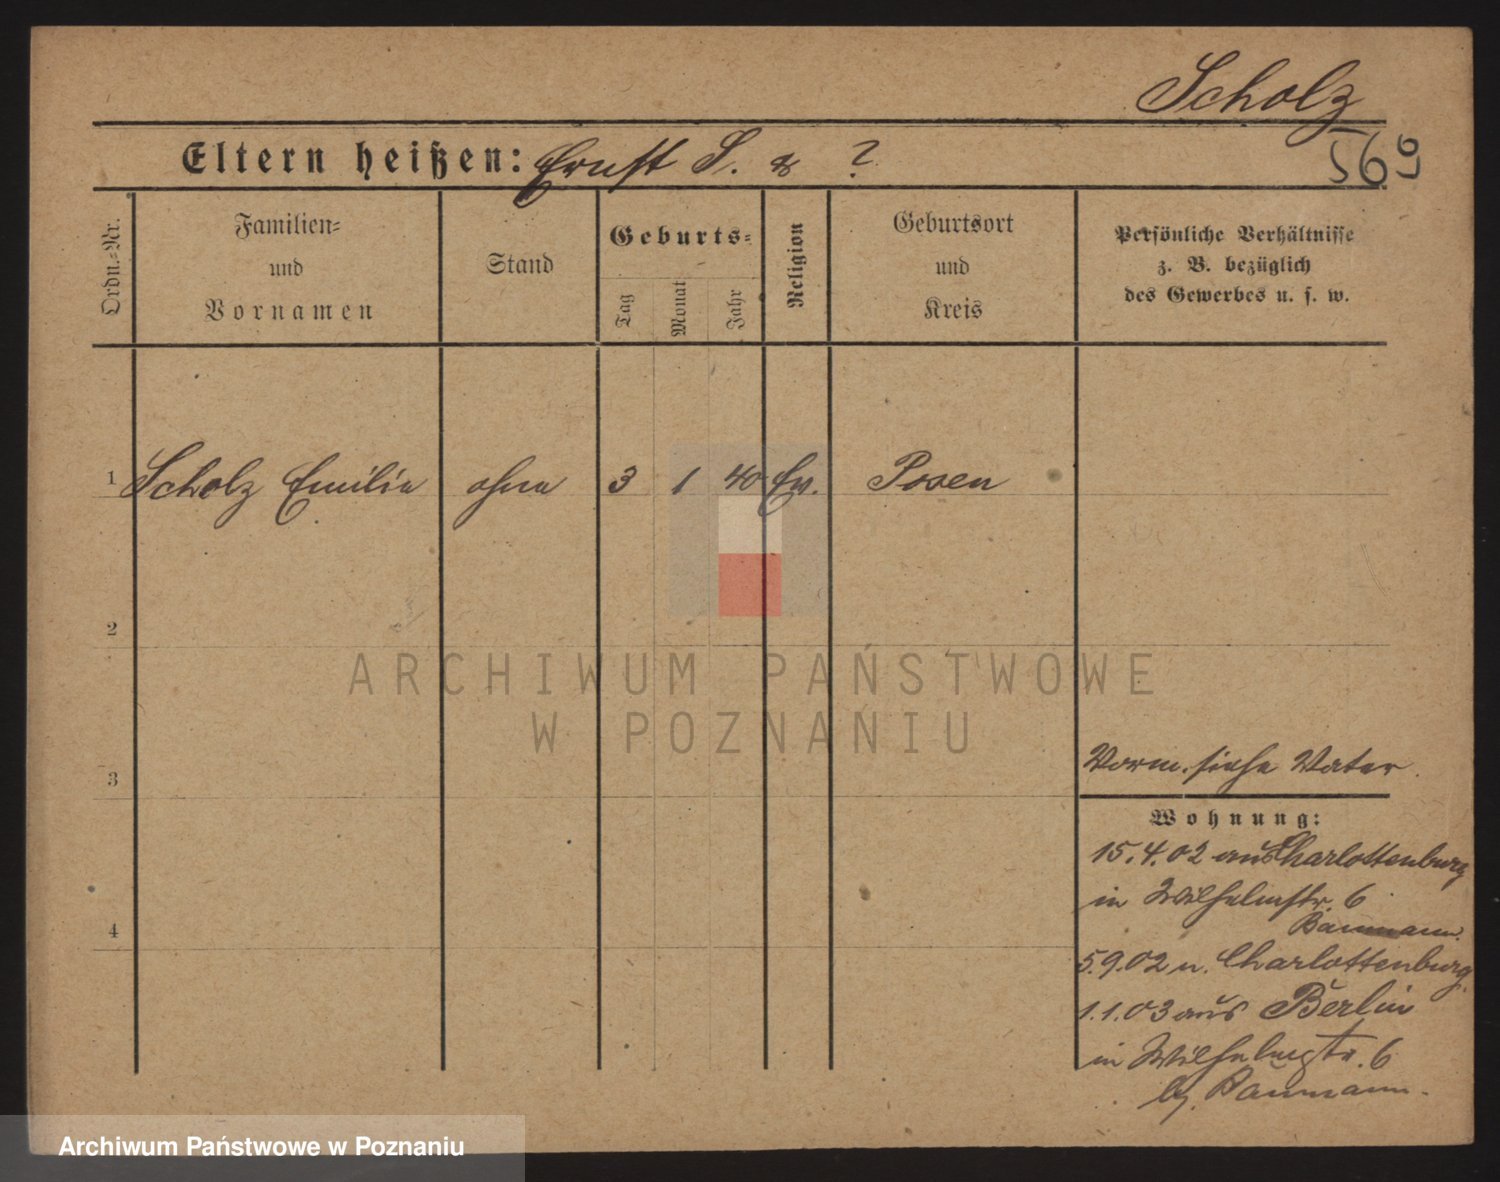 Scholz
Eltern heißen: Ernst S. & ?
569
Ordn.-Nr.
Familien-
und
Vornamen
Stand
Geburts-
Tag
Monat
Jahr
Religion
Geburtsort
und
Kreis
Persönliche Verhältnisse
z. B. bezüglich
des Gewerbes u. s. w.
1 Scholz Emilie ohne 3 1 40 Ev. Posen
2
ARCHIWUM PAŃSTWOWE
W POZNANIU
3
Vorm. siehe Vater.
Wohnung:
15.4.02 aus Charlottenburg
in Wilhelmstr. 6
Baumann.
4
5.9.02 n. Charlottenburg.
1.1.03 aus Berlin
in Wilhelmstr. 6
b. Baumann.
Archiwum Państwowe w Poznaniu